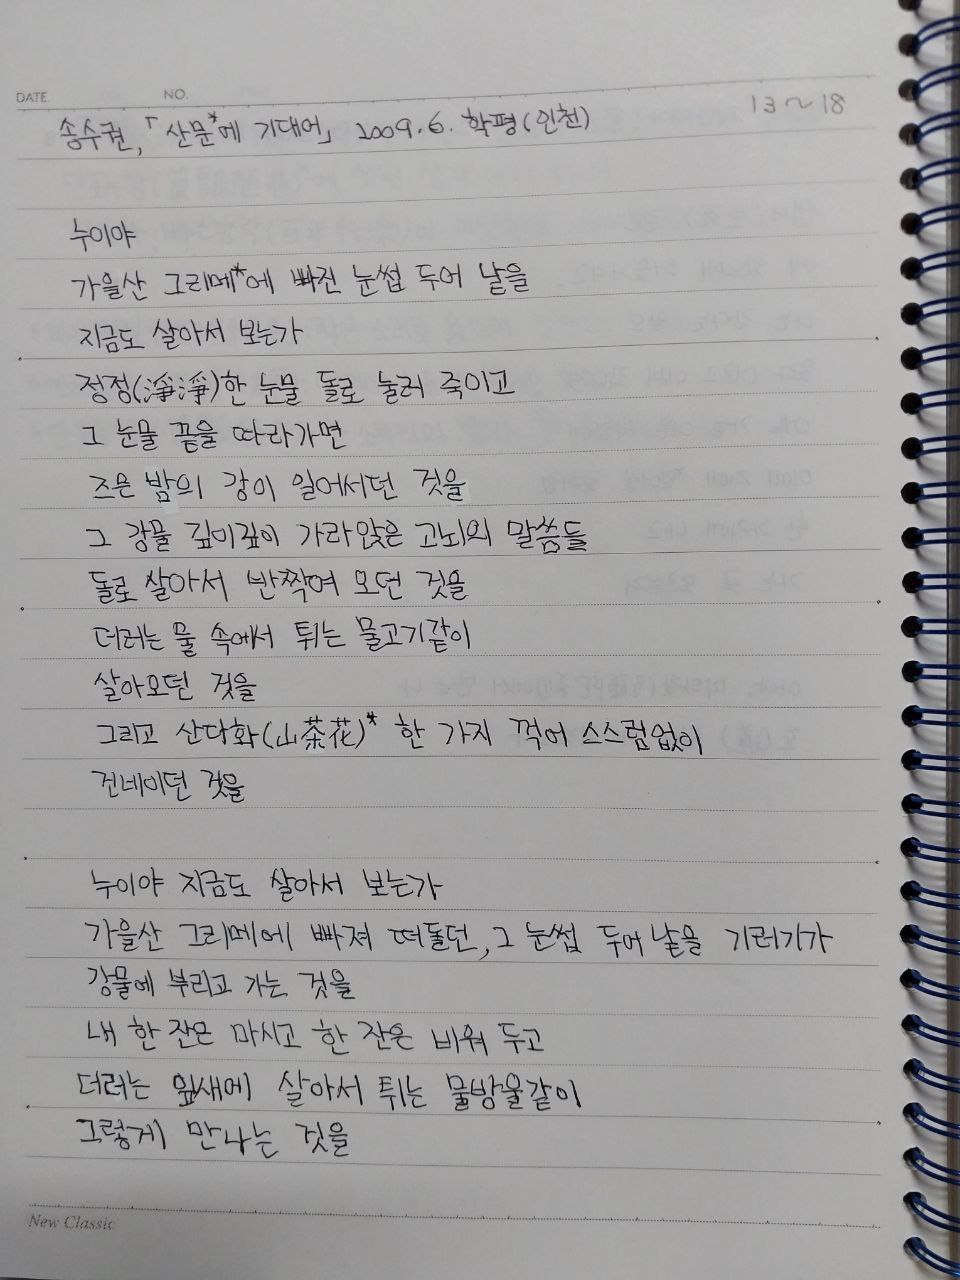 DATE. NO.
13~18
송수권, 「산문*에 기대어」 2009.6. 학평(인천)
누이야
가을산 그리메*에 빠진 눈썹 두어 낱을
지금도 살아서 보는가
정정(淨淨)한 눈물 돌로 눌러 죽이고
그 눈물 끝을 따라가면
즈믄 밤의 강이 일어서던 것을
그 강물 깊이깊이 가라앉은 고뇌의 말씀들
돌로 살아서 반짝여 오던 것을
더러는 물 속에서 튀는 물고기같이
살아오던 것을
그리고 산다화(山茶花)* 한 가지 꺾어 스스럼없이
건네이던 것을
누이야 지금도 살아서 보는가
가을산 그리메에 빠져 떠돌던, 그 눈썹 두어 낱을 기러기가
강물에 부리고 가는 것을
내 한 잔은 마시고 한 잔은 비워 두고
더러는 잎새에 살아서 튀는 물방울같이
그렇게 만나는 것을
New Classic